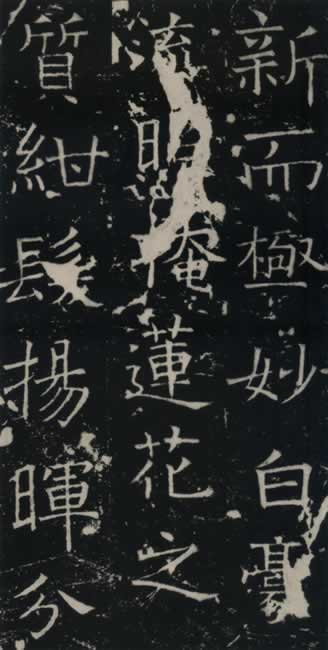 新而極妙白豪
流照掩蓮花之
質紺髮揚暉分